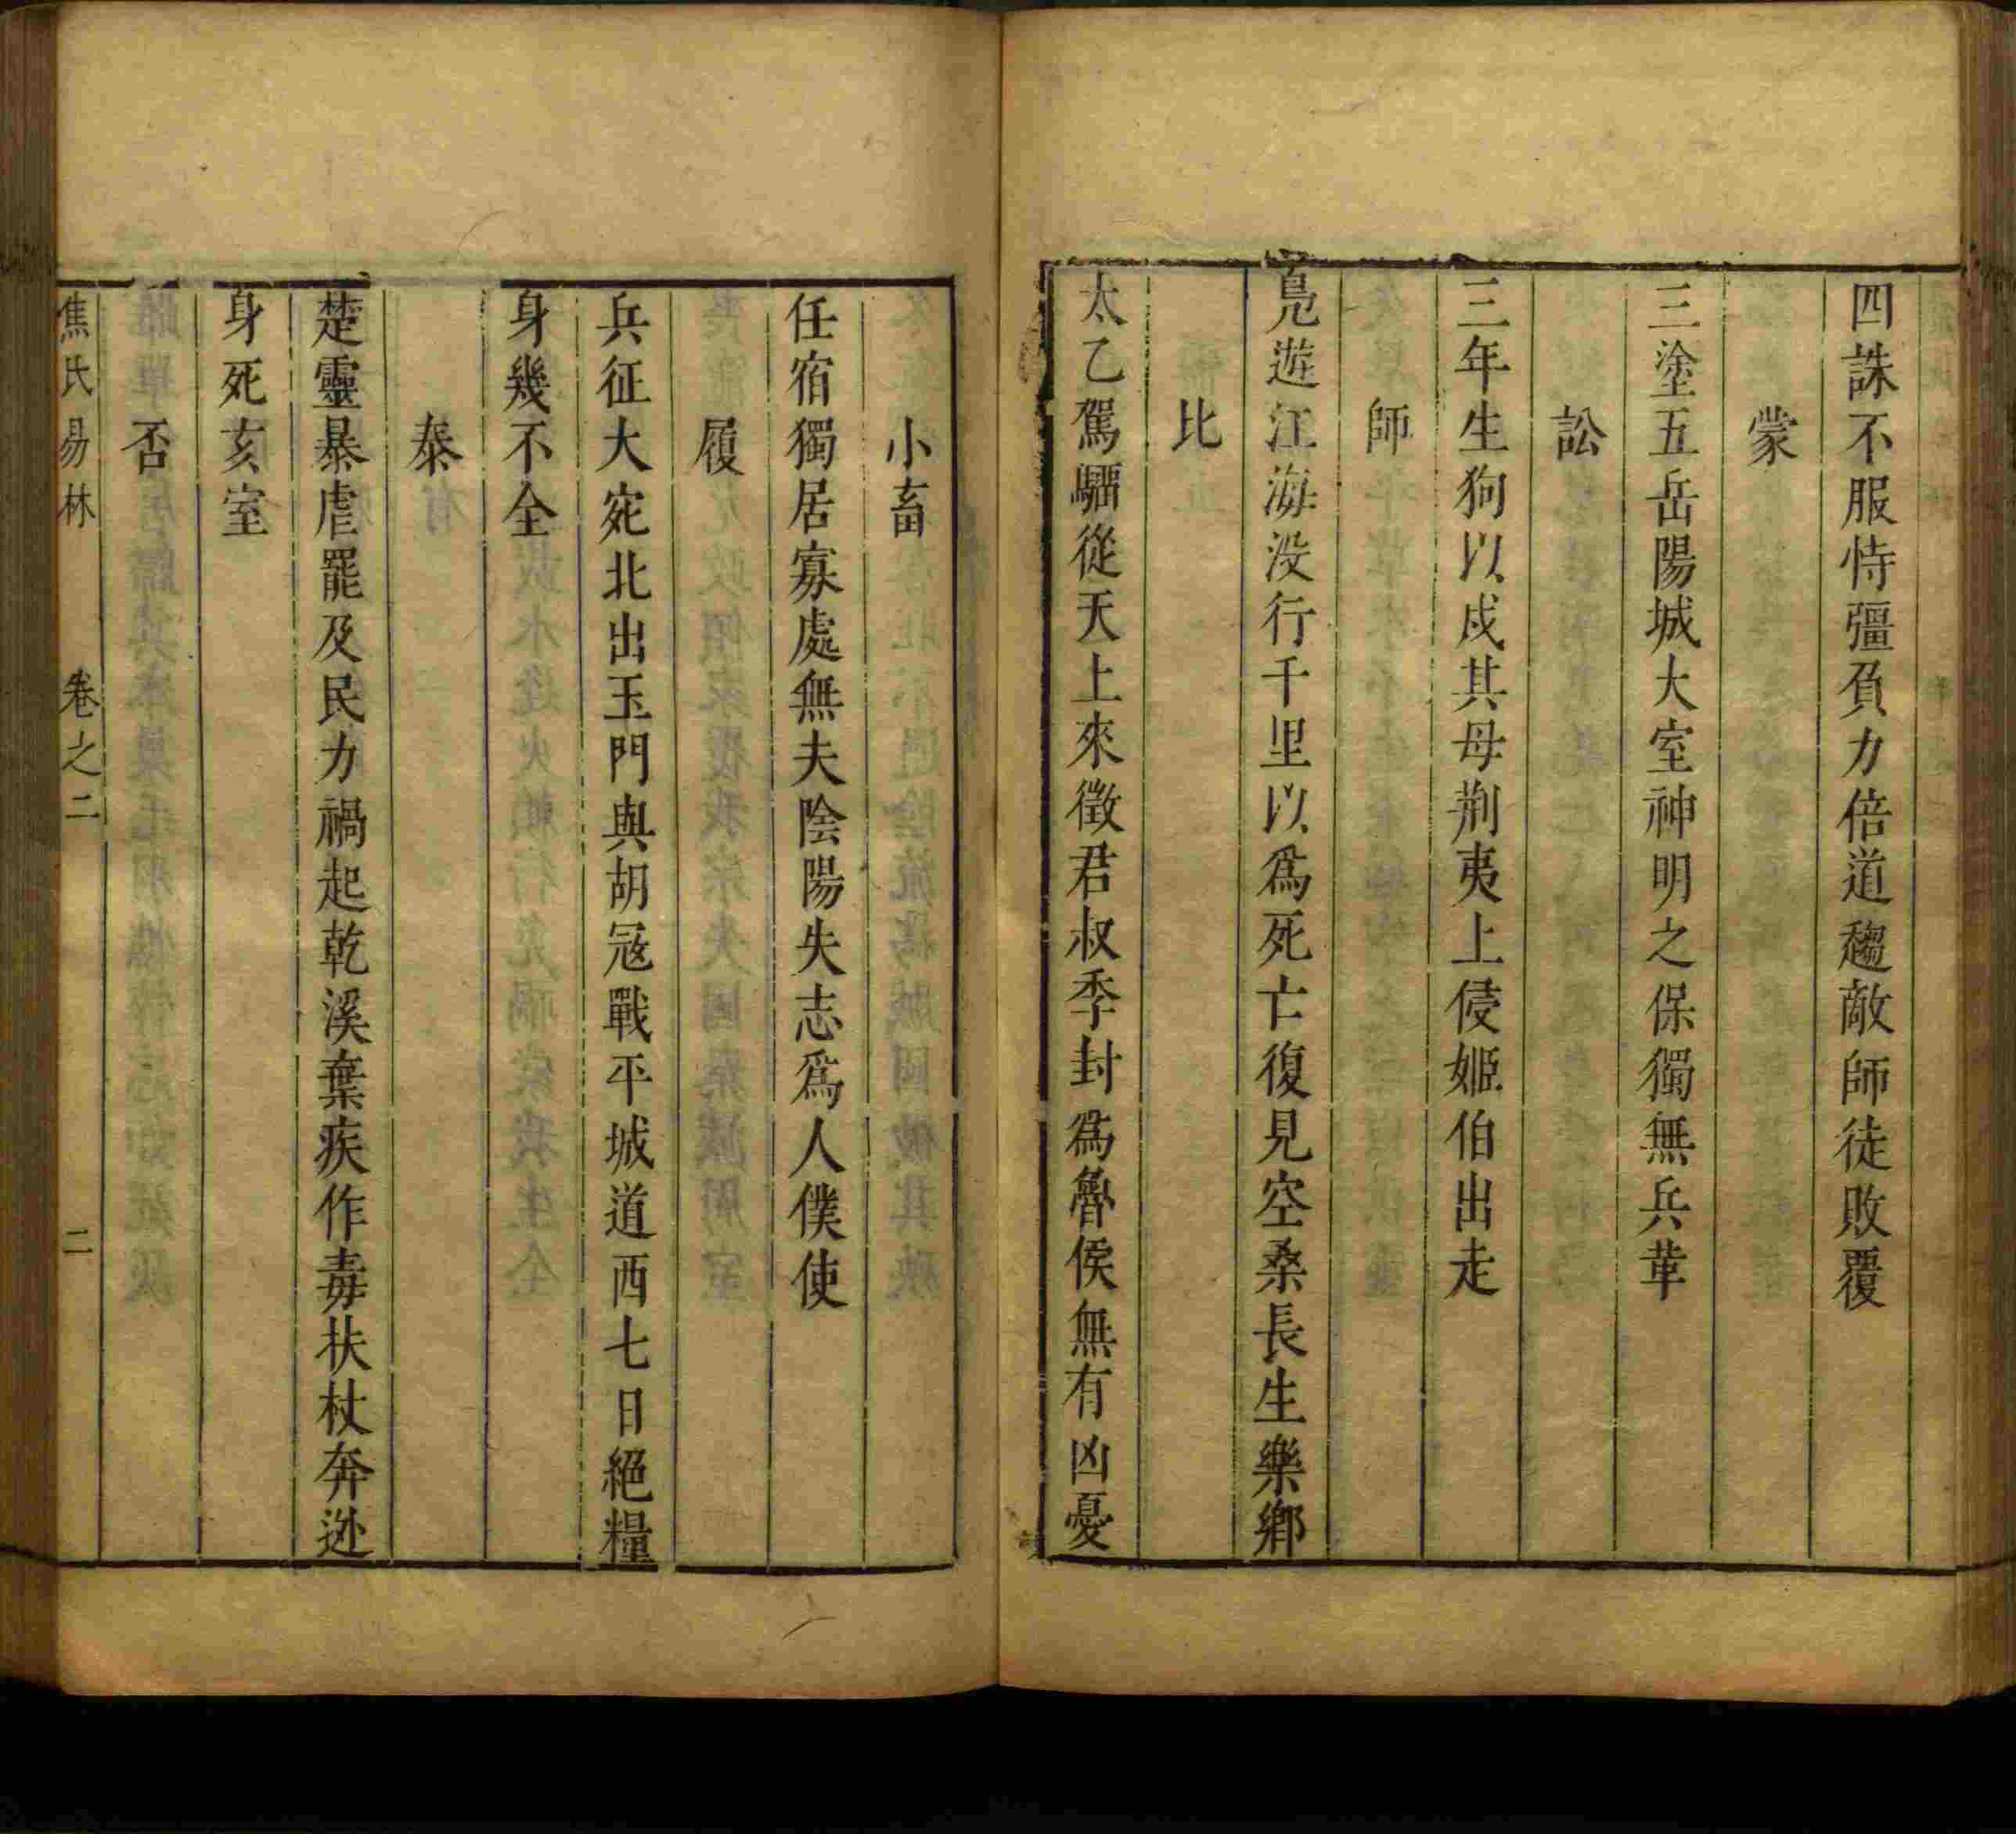 四誅不服恃彊負力倍道趨敵師徒敗覆
蒙
三塗五岳陽城大室神明之保獨無兵革
訟
三年生狗以戍其母荆夷上侵姬伯出走
師
鳧遊江海没行千里以爲死亡復見空桑長生樂鄉
比
太乙駕騮從天上來徵君叔季封爲魯侯無有凶憂
小畜
任宿獨居寡處無夫陰陽失志爲人僕使
履
兵征大宛北出玉門與胡冦戰平城道西七日絕糧
身幾不全
泰
楚靈暴虐罷及民力禍起乾溪棄疾作毒扶杖奔逊
身死亥室
否
焦氏易林 卷之二 二